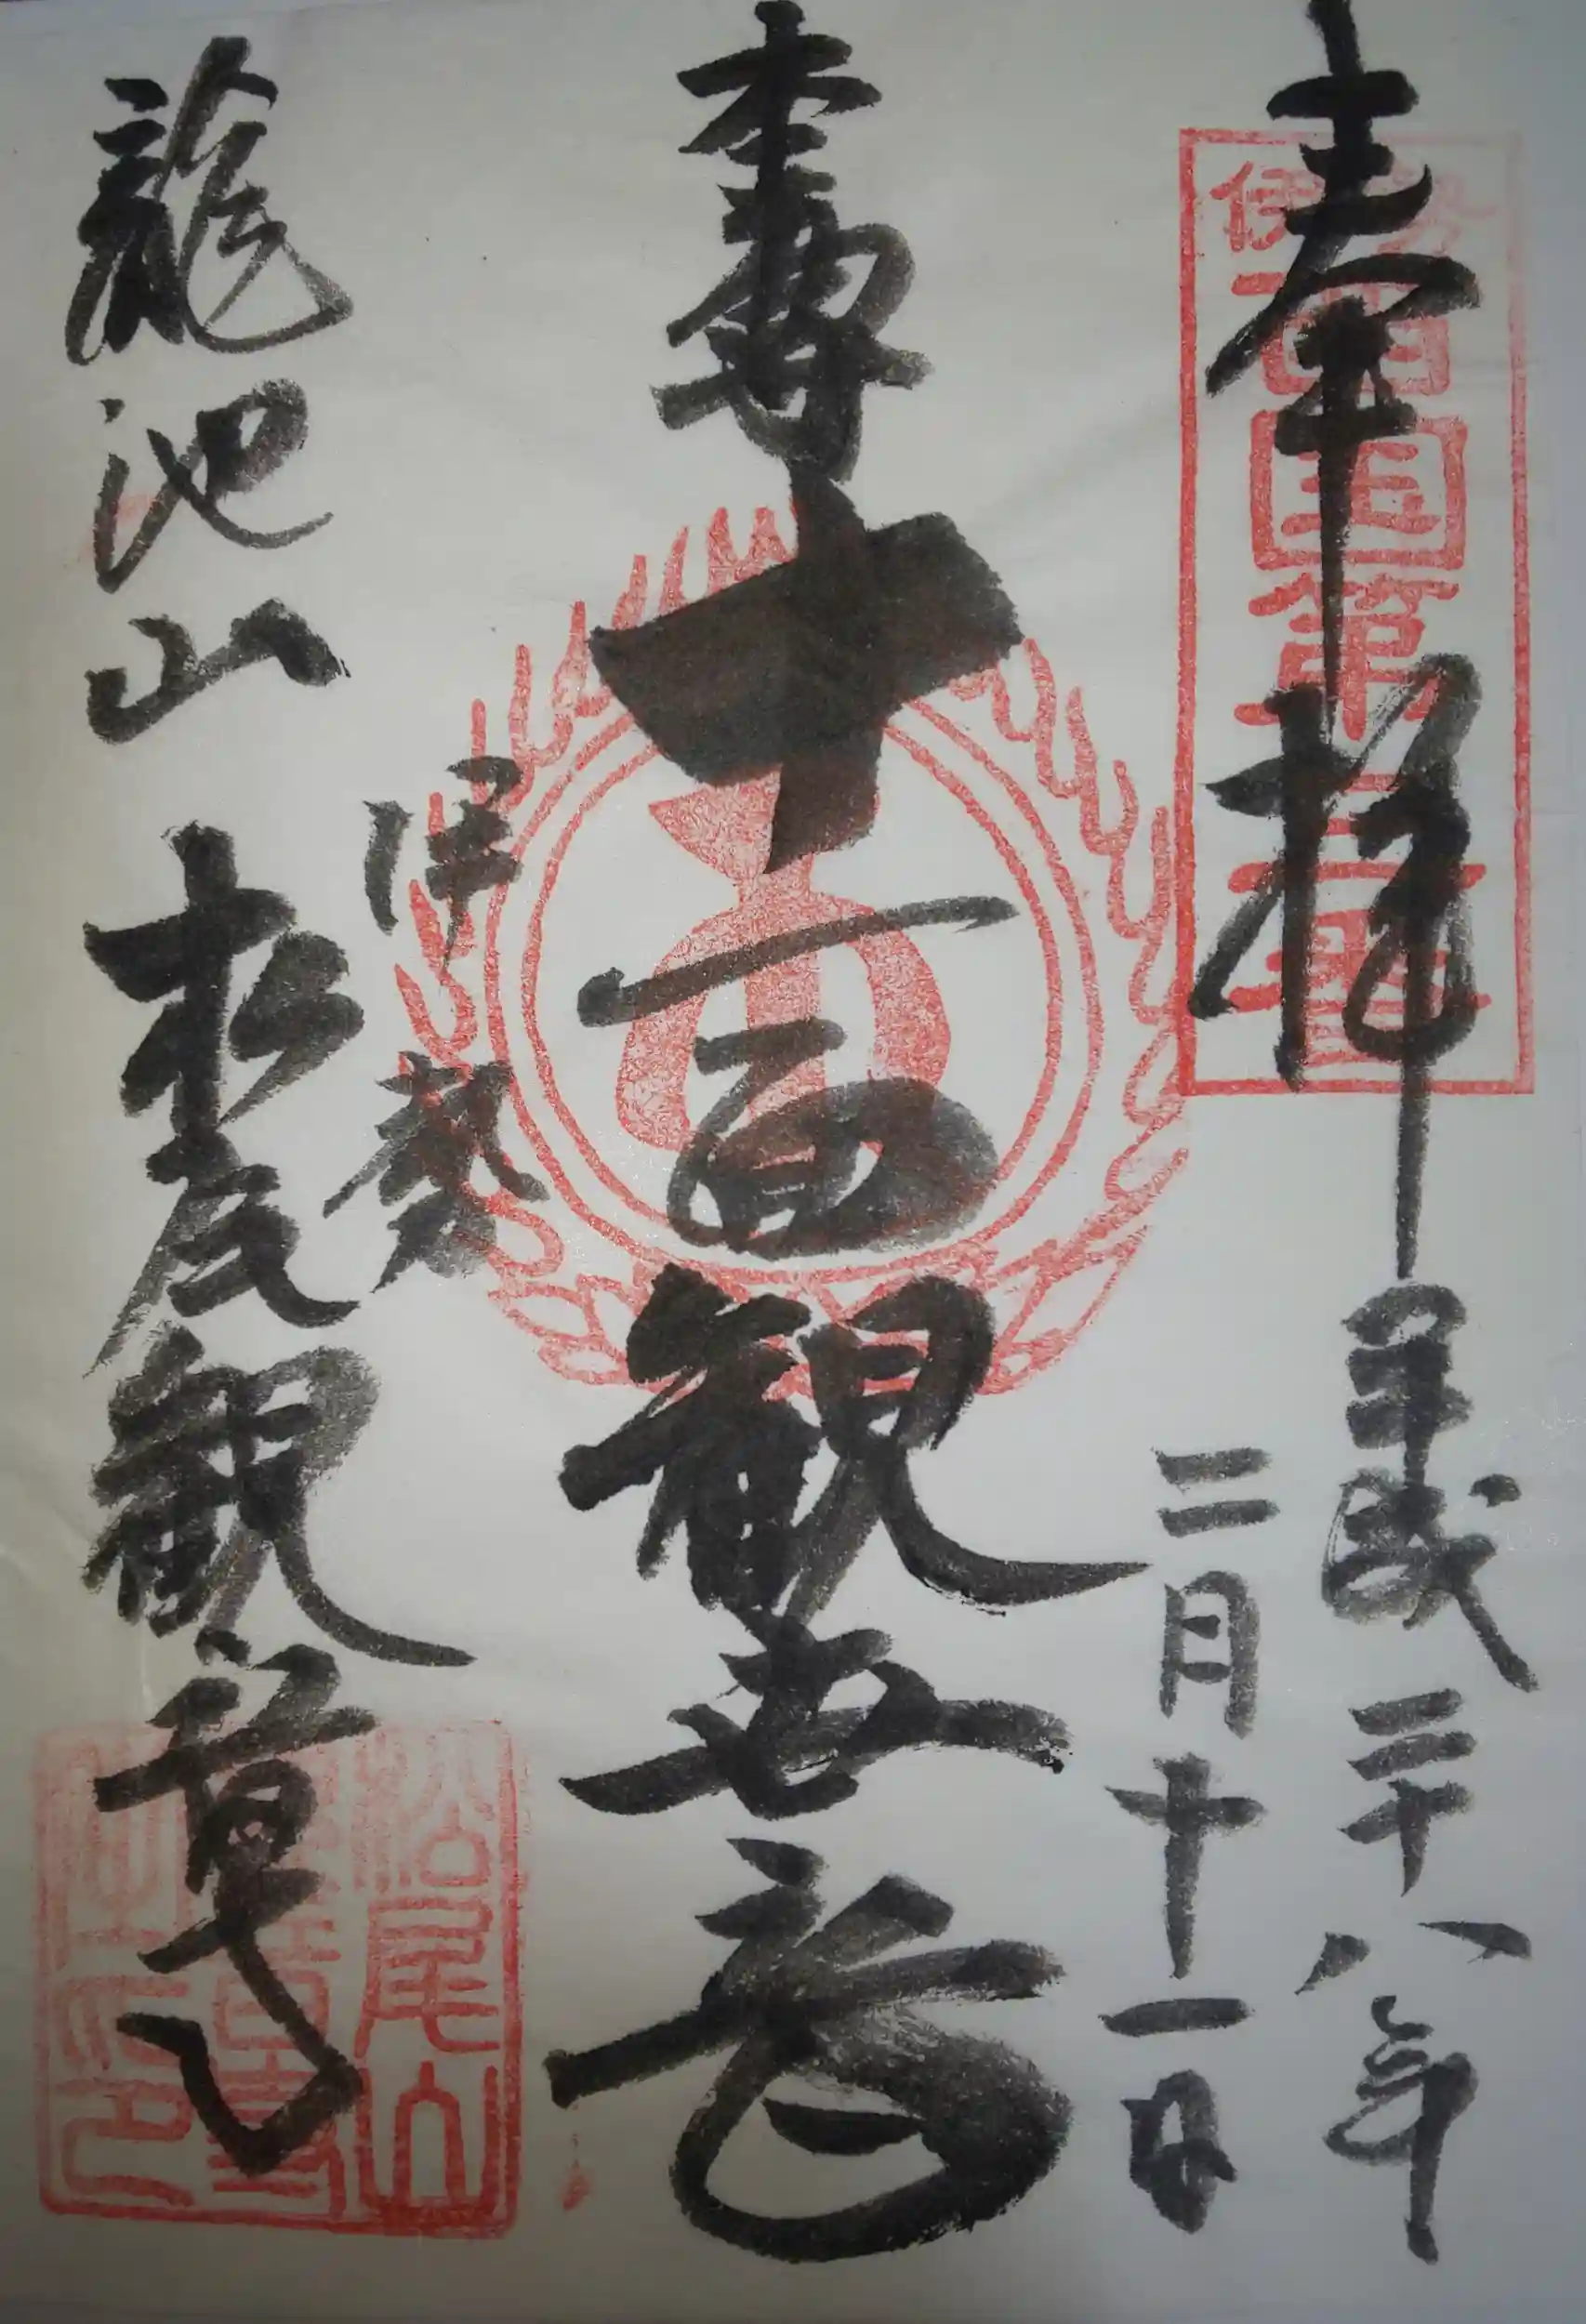 奉拝
平成二十八年
二月十一日
伊勢西国第三番
本尊十一面観世音
伊勢
龍池山 松尾観音寺
松尾山